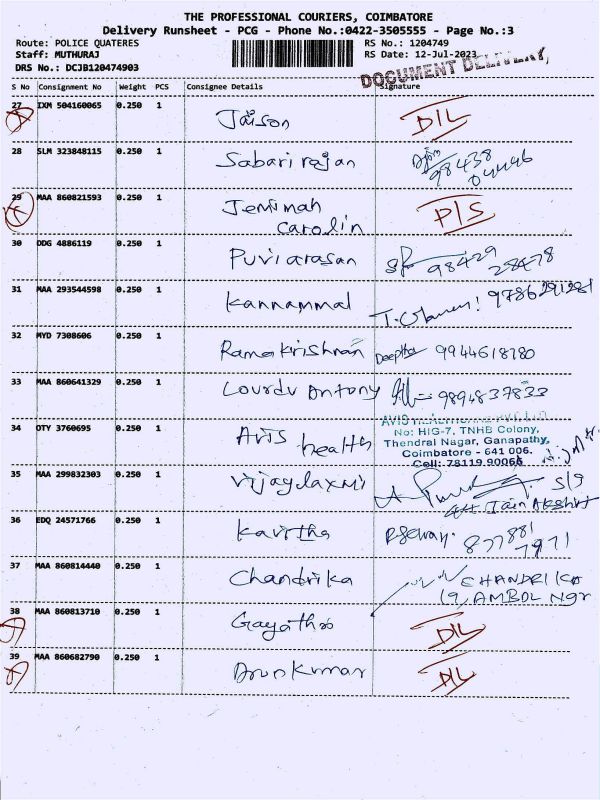 THE PROFESSIONAL COURIERS, COIMBATORE
Delivery Runsheet - PCG - Phone No.:0422-3505555 - Page No.:3
Route: POLICE QUATERES RS No.: 1204749
Staff: MUTHURAJ RS Date: 12-Jul-2023
DRS No.: DCJB120474903
DOCUMENT DELIVERY,
S No Consignment No Weight PCS Consignee Details Signature
27 IXM 504160065 0.250 1 Jaison D/L
28 SLM 323848115 0.250 1 Sabari rajan 98438
04446
29 MAA 860821593 0.250 1 Jemimah P/S
Carolin
30 DDG 4886119 0.250 1 Puviarasan 98429
28478
31 MAA 293544598 0.250 1 Kannammal 9786291281
32 MYD 7308606 0.250 1 Ramakrishnan Deeptha 9944618180
33 MAA 860641329 0.250 1 Lourdu Antony 9894837833
34 OTY 3760695 0.250 1 Avis health
No: HIG-7, TNHB Colony,
Thendral Nagar, Ganapathy,
Coimbatore - 641 006.
Cell: 78119 90066
35 MAA 299832303 0.250 1 Vijaylaxmi S/9
Jain Akshat
36 EDQ 24571766 0.250 1 Kavitha 877881
7971
37 MAA 860814440 0.250 1 Chandrika CHANDRIKA
19, AMBOL Ngr
38 MAA 860813710 0.250 1 Gayathri D/L
39 MAA 860682790 0.250 1 Arunkumar D/L